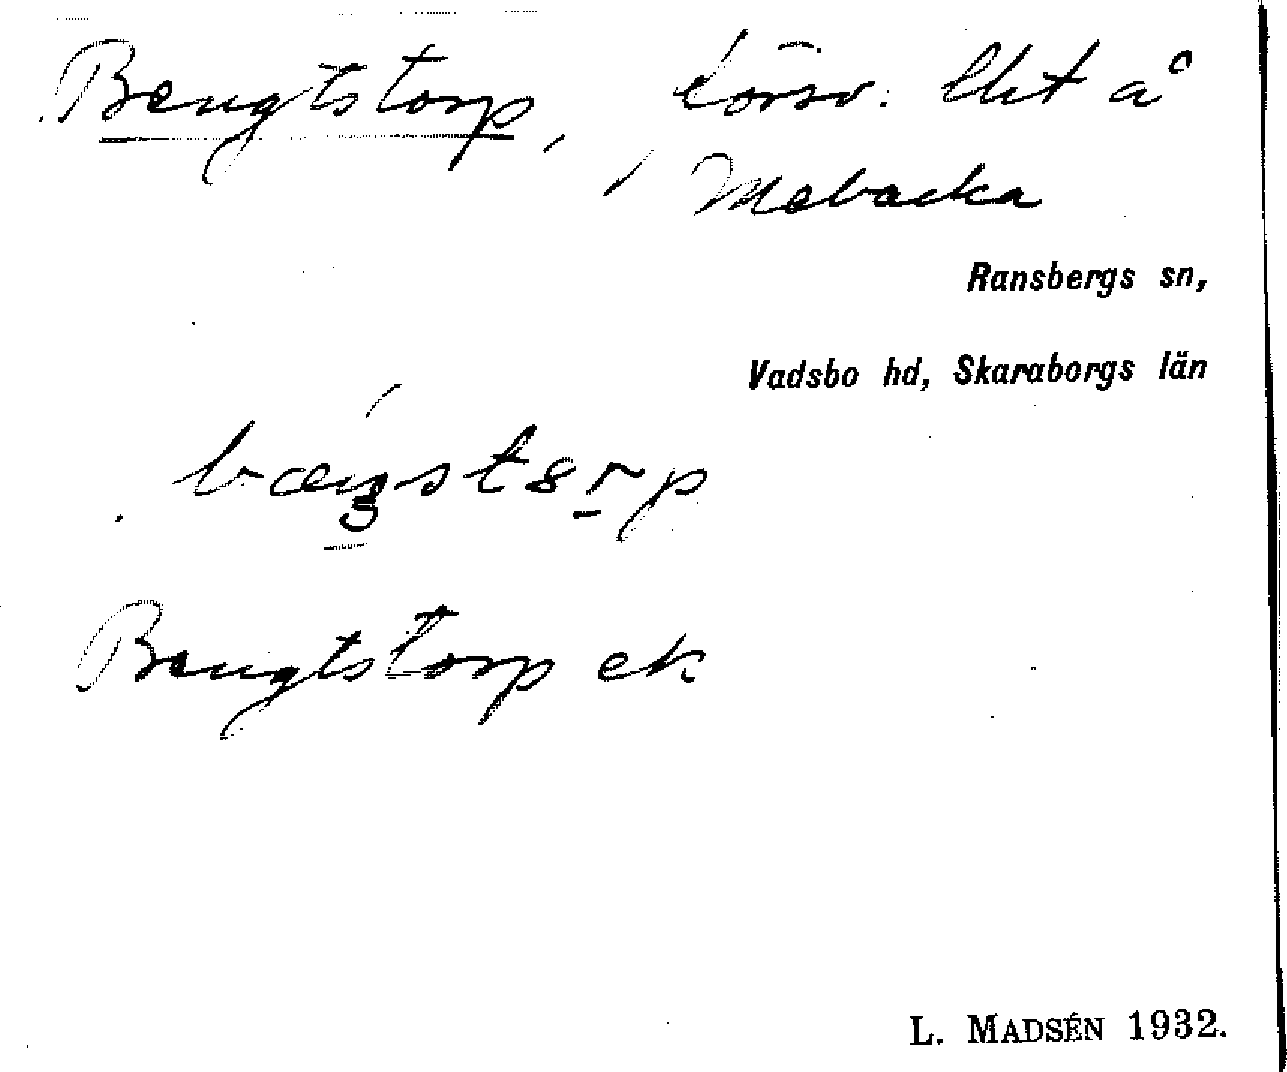 Bengtstorp, försv. lht å
Mebacka
Ransbergs sn,
Vadsbo hd, Skaraborgs län
Bengtstorp ek
L. MADSÉN 1932.